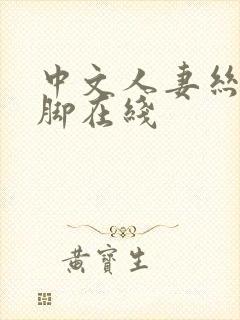 中文人妻丝
脚在綫
黄寶生